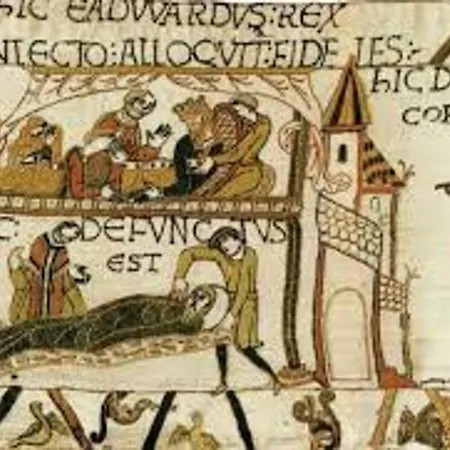 hIC EADVVARDVS:REX
N LECTO:ALLOQVIT:FIDE LES:
hIC D
COR
C: DEFVNCTVS
EST